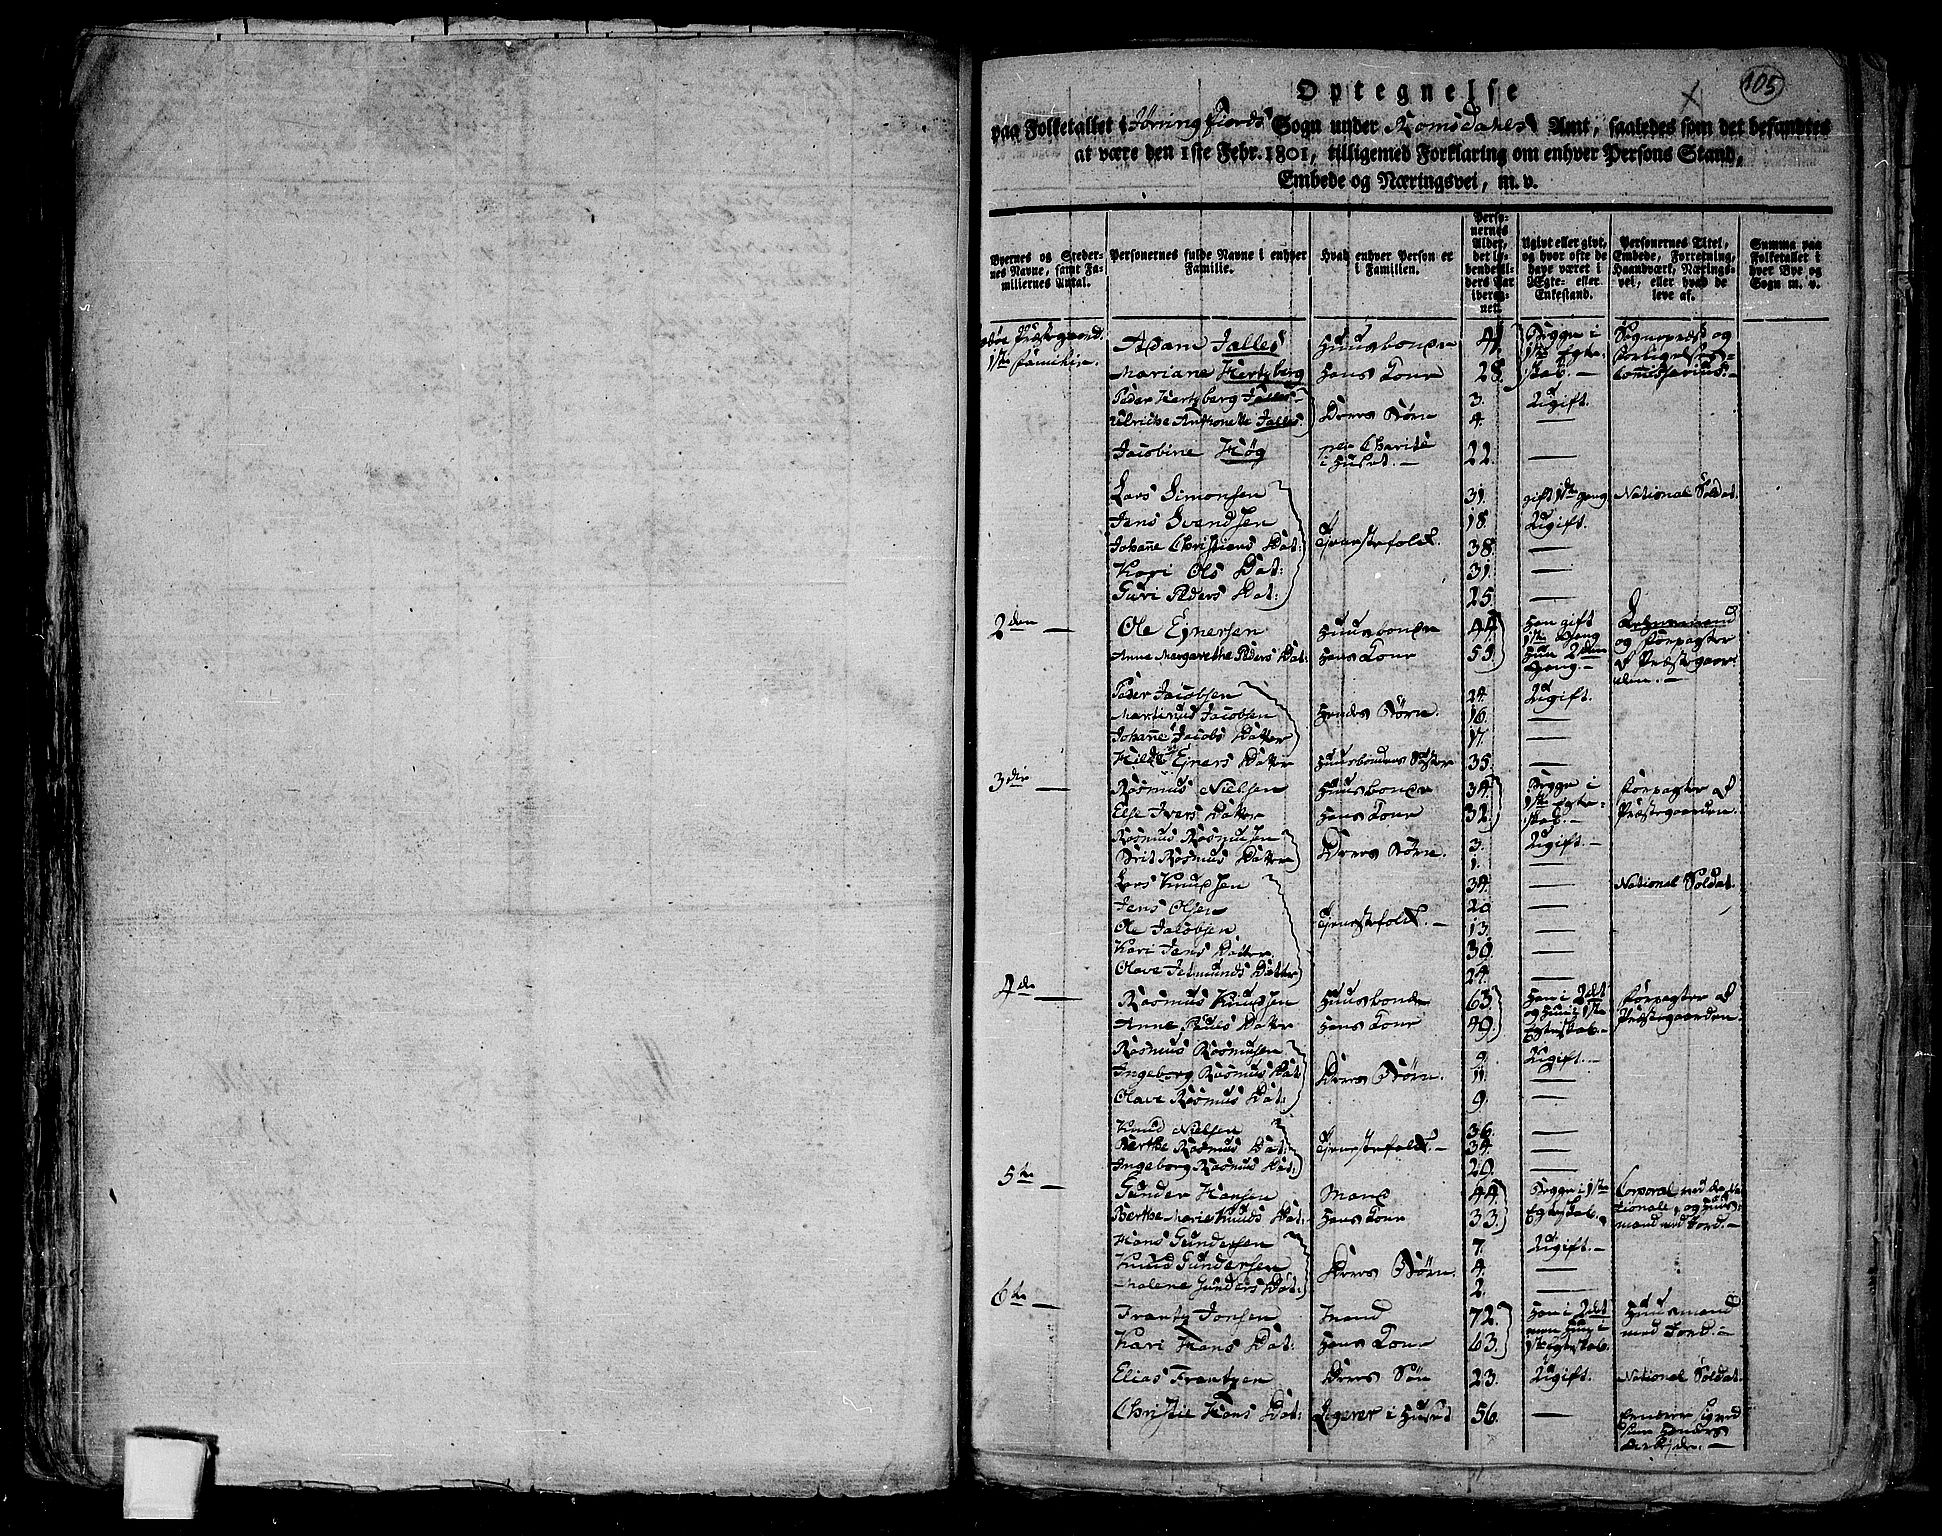 105
Optegnelse
paa Folketallet i Jørringfiords Sogn under Romsdahls Amt, saaledes som det befandtes
at være den 1ste Febr. 1801, tilligemed Forklaring om enhver Persons Stand,
Embede og Næringsvei, m. v.
Byernes og Stedernes Navne, samt Familiernes Antal.
Personernes fulde Navne i enhver Familie.
Hvad enhver Person er i Familien.
Personernes Alder, det lybendeAlders Aar iberegnet.
Ugivt eller givt, og hvor ofte de have været i Ægte- eller Enkestand.
Personernes Titel, Embede, Forretning, Haandværk, Næringsvei, eller hvad de leve af.
Summa paa Folketallet i hver Bye og Sogn m. v.
Præstegaard. 1ste Familie.
Adam Jalles Huusbonde 41. Begge i 1ste Egteskab. Sognepræst og Forligelses-Commissarius.
Mariane Hertzberg Hans Kone 28.
Peder Hertzberg Jalles Deres Børn 3. Ugift.
Ulriche Anthonette Jalles 4. —
Jacobine Høg pleie Charité i Huset. 22. —
Lars Simonsen 31. gift 1ste gang National Soldat.
Jens Svendsen 18. Ugift.
Johanne Christians Dat: Tjenestefolk. 38. —
Kari Ols Dat: 31. —
Guri Peders Dat: 25. —
2den — Ole Ejnersen Huusbonde 44. Han gift 1ste Gang Hun 2den Gang. og Forpagter af Præstegaarden.
Anne Margarethe Peders Dat: Hans Kone 53.
Peder Jacobsen 24. Ugift.
Martinus Jacobsen Hendes Børn. 16. —
Johanne Jacobs Datter 17. —
Ejners Datter Huusbondens Søster 35. —
3die — Rasmus Nielsen Huusbonde 34. Begge i 1ste Egteskab. Forpagter af Præstegaarden.
Else Ivers Datter Hans Kone 32.
Rasmus Rasmusen Deres Børn. 3. Ugift.
Brit Rasmus Datter 1. —
Lars Knudsen 34. — National Soldat.
Jens Olsen 20 —
Ole Jacobsen Tjenestefolk. 13. —
Kari Jens Datter 30. —
Olave Jetmunds Datter 24. —
4de — Rasmus Knudsen Huusbonde 63. Han i 2det og Hun i 1ste Egteskab. Forpagter af Præstegaarden.
Anne Peders Datter Hans Kone 49.
Rasmus Rasmusen 9. Ugift.
Ingeborg Rasmus Dat: Deres Børn. 11. —
Olave Rasmus Dat: 9. —
Knud Nielsen 36. —
Berthe Rasmus Dat: Tjenestefolk. 34. —
Ingeborg Rasmus Dat: 20. —
5te — Gunder Hansen Mand 44. Begge i 1ste Egteskab. Corporal ved det Nationale, og Huusmand med Jord.
Berthe Marie Knuds Dat: Hans Kone 33.
Hans Gundersen 7. Ugift.
Knud Gundersen Deres Børn. 4. —
Malene Gunders Dat: 2. —
6te — Frantz Jonsen Mand 72. Han i 2det men Hun i 1ste Egteskab. Huusmand med Jord.
Kari Hans Dat: Hans Kone 63.
Elias Frantzen Deres Søn 23. Ugift. National Soldat.
Christie Hans Dat: Logerer i Huset 56. — sine Hænders Arbejde.